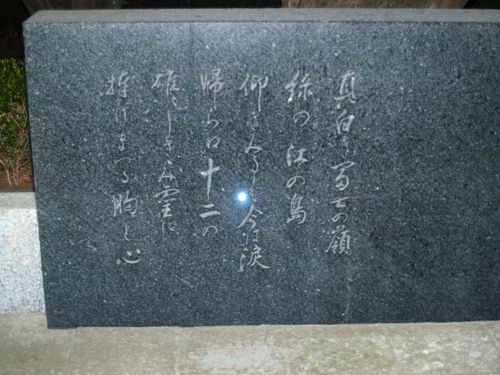 真白き富士の嶺
緑の江の島
仰ぎみるも今は涙
帰らぬ十二の
雄々しきみ霊に
捧げまつる胸と心